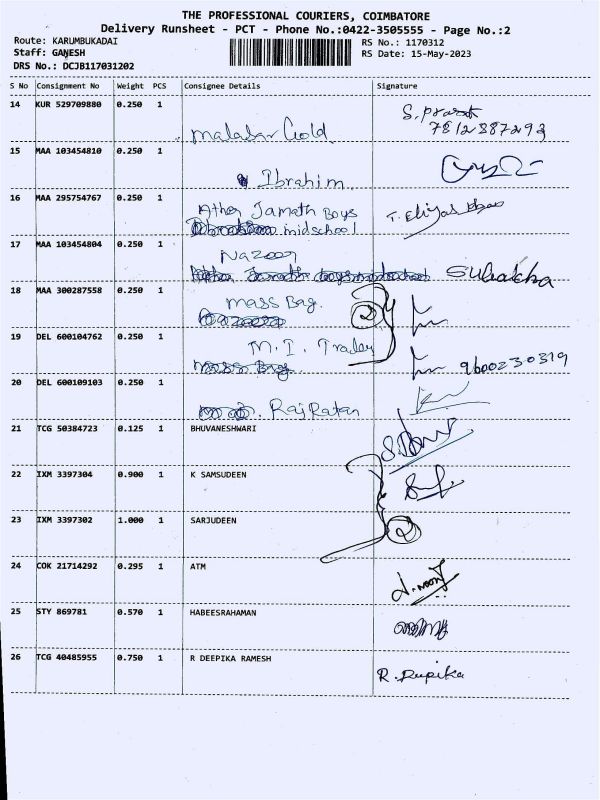 THE PROFESSIONAL COURIERS, COIMBATORE
Delivery Runsheet - PCT - Phone No.:0422-3505555 - Page No.:2
Route: KARUMBUKADAI RS No.: 1170312
Staff: GANESH RS Date: 15-May-2023
DRS No.: DCJB117031202
S No Consignment No Weight PCS Consignee Details Signature
14 KUR 529709880 0.250 1 malabar Gold S. prasat 7812887293
15 MAA 103454810 0.250 1 Ibrahim
16 MAA 295754767 0.250 1 Ather Jamath Boys
midschool T. Eliyas
17 MAA 103454804 0.250 1 Nazoor
Suhakha
18 MAA 300287558 0.250 1 mass Bag. 2
19 DEL 600104762 0.250 1 M. I. Trader
9600230319
20 DEL 600109103 0.250 1 Raj Ratan
21 TCG 50384723 0.125 1 BHUVANESHWARI
22 IXM 3397304 0.900 1 K SAMSUDEEN
23 IXM 3397302 1.000 1 SARJUDEEN 2
24 COK 21714292 0.295 1 ATM
25 STY 869781 0.570 1 HABEESRAHAMAN
26 TCG 40485955 0.750 1 R DEEPIKA RAMESH R. Depika